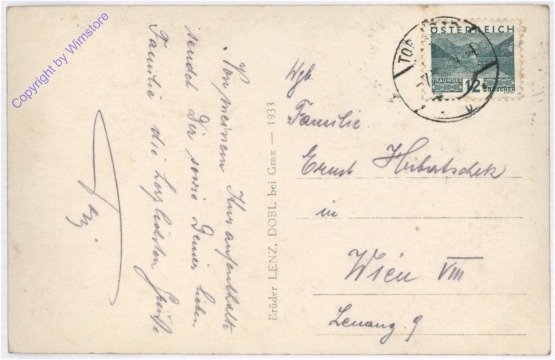 Copyright by Wimstore
Von meinem Kuraufenthalte
sendet Dir sowie Deiner lieben
Familie die herzlichsten Grüße
Brüder LENZ, DOBL bei Graz — 1933
ÖSTERREICH
12
GROSCHEN
Wgb.
Familie
Ernst Hubatschek
in
Wien VIII
Lenaug. 9